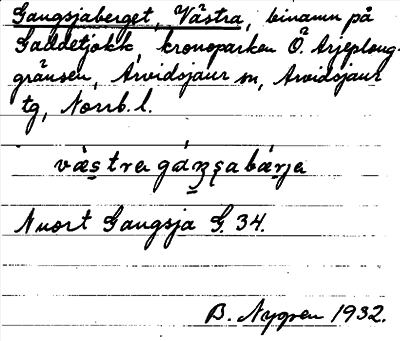 Gaugsjaberget, Västra, binamn på
Gaddetjåkk, kronoparken Ö. Arjeploug-
gränsen, Arvidsjaur sn, Arvidsjaur
tg, Norrb. l.
Nuort Gaugsja G. 34.
B. Nygren 1932.